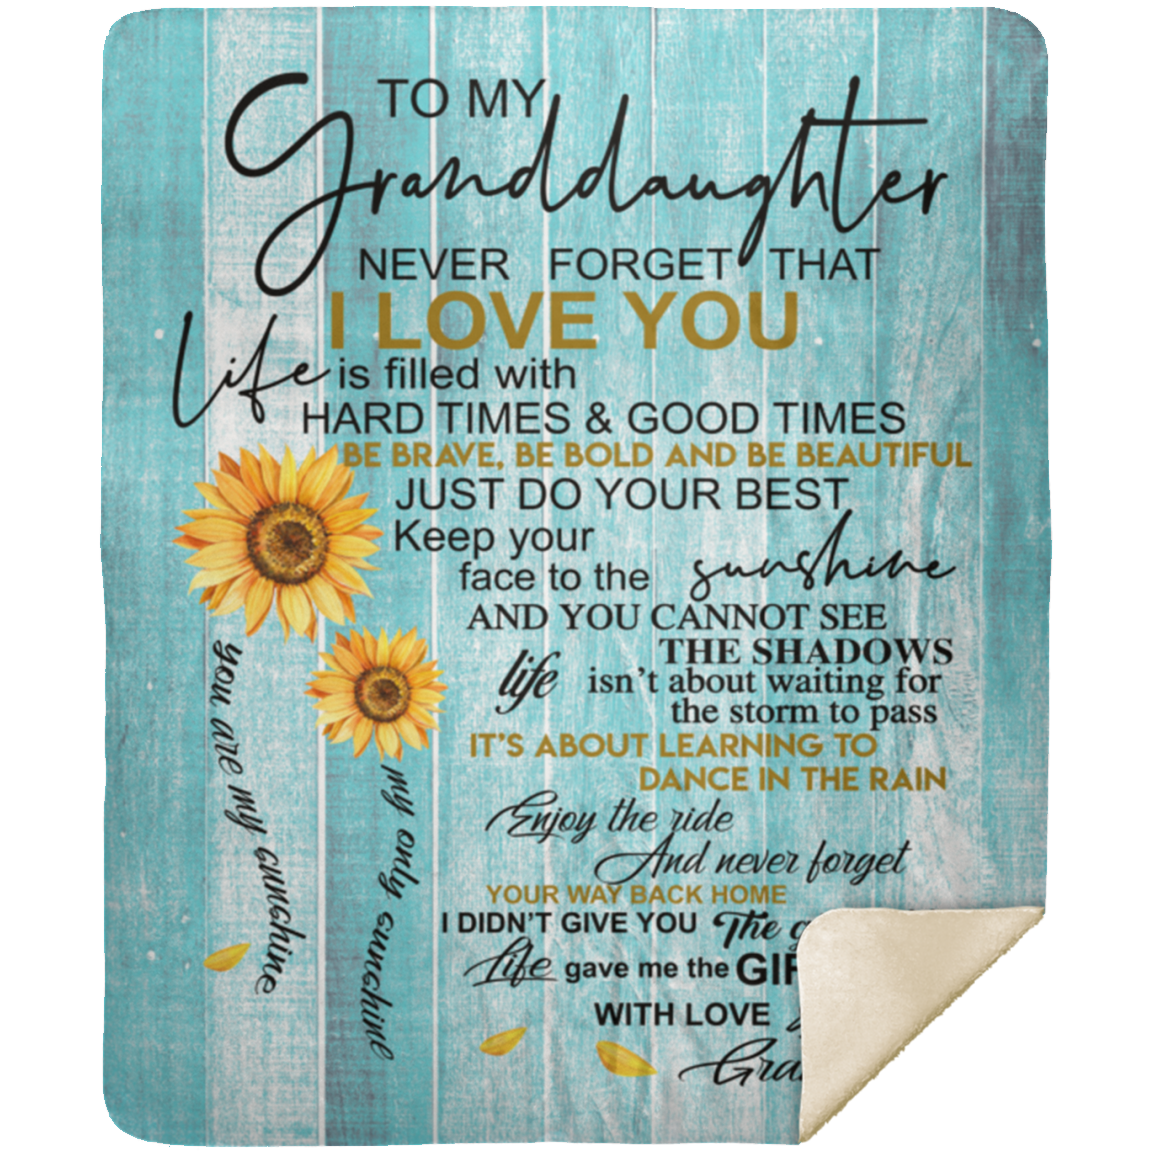 TO MY
Granddaughter
NEVER FORGET THAT
I LOVE YOU
Life is filled with
HARD TIMES & GOOD TIMES
BE BRAVE, BE BOLD AND BE BEAUTIFUL
JUST DO YOUR BEST
Keep your
face to the sunshine
AND YOU CANNOT SEE
THE SHADOWS
life isn't about waiting for
the storm to pass
IT'S ABOUT LEARNING TO
DANCE IN THE RAIN
Enjoy the ride
And never forget
YOUR WAY BACK HOME
I DIDN'T GIVE YOU The
Life gave me the
WITH LOVE
you are my sunshine
my only sunshine